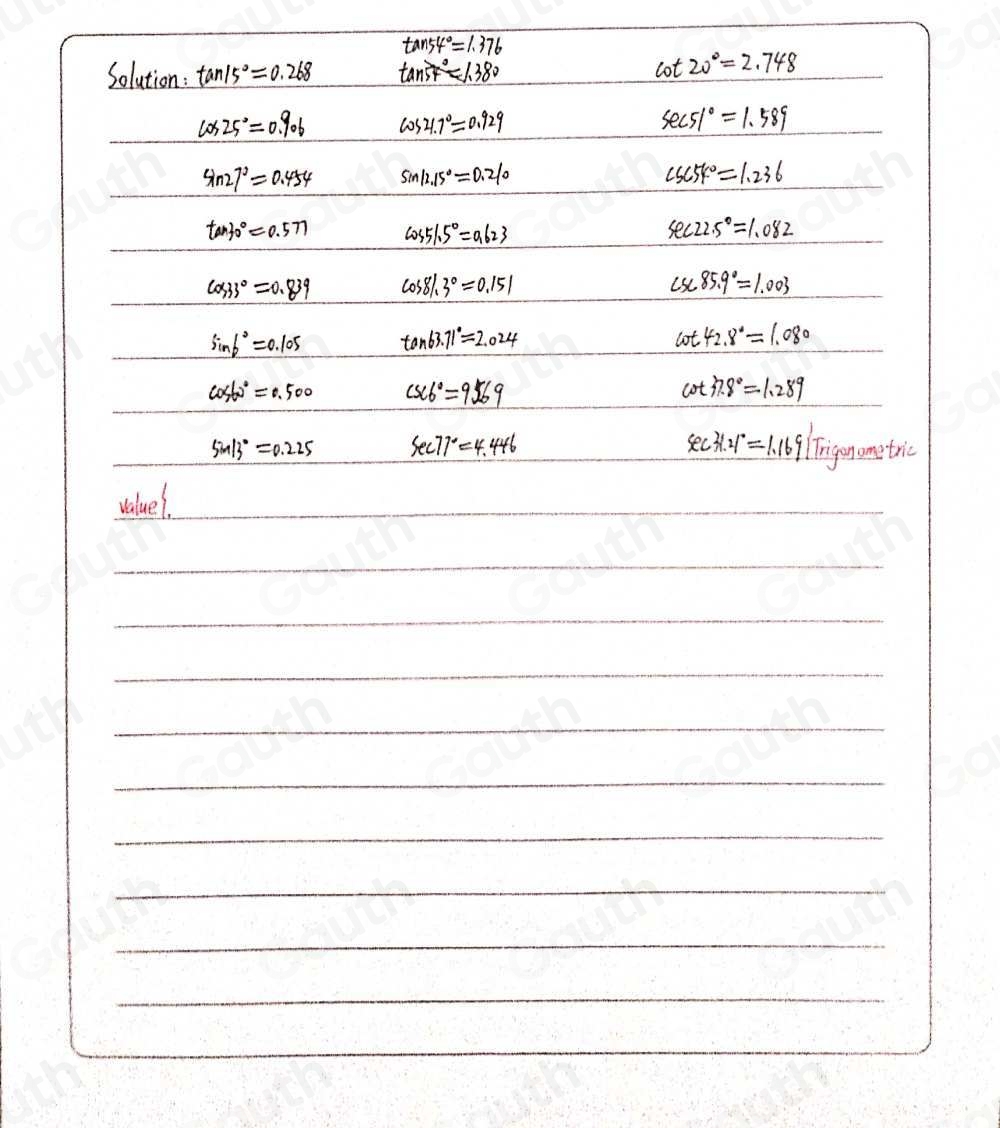 tan54°=1.376
Solution: tan15°=0.268 tan54°=1.380 cot 20°=2.748
cos25°=0.906 cos21.7°=0.929 sec51°=1.589
sin27°=0.454 sin12.15°=0.210 csc54°=1.236
tan30°=0.577 cos51.5°=0.623 sec22.5°=1.082
cos33°=0.839 cos81.3°=0.151 csc85.9°=1.003
sin6°=0.105 tan63.71°=2.024 cot42.8°=1.080
cos60°=0.500 csc6°=9.569 cot37.8°=1.289
sin13°=0.225 sec77°=4.446 sec31.21°=1.169{Trigonometric
value}.
Gauth